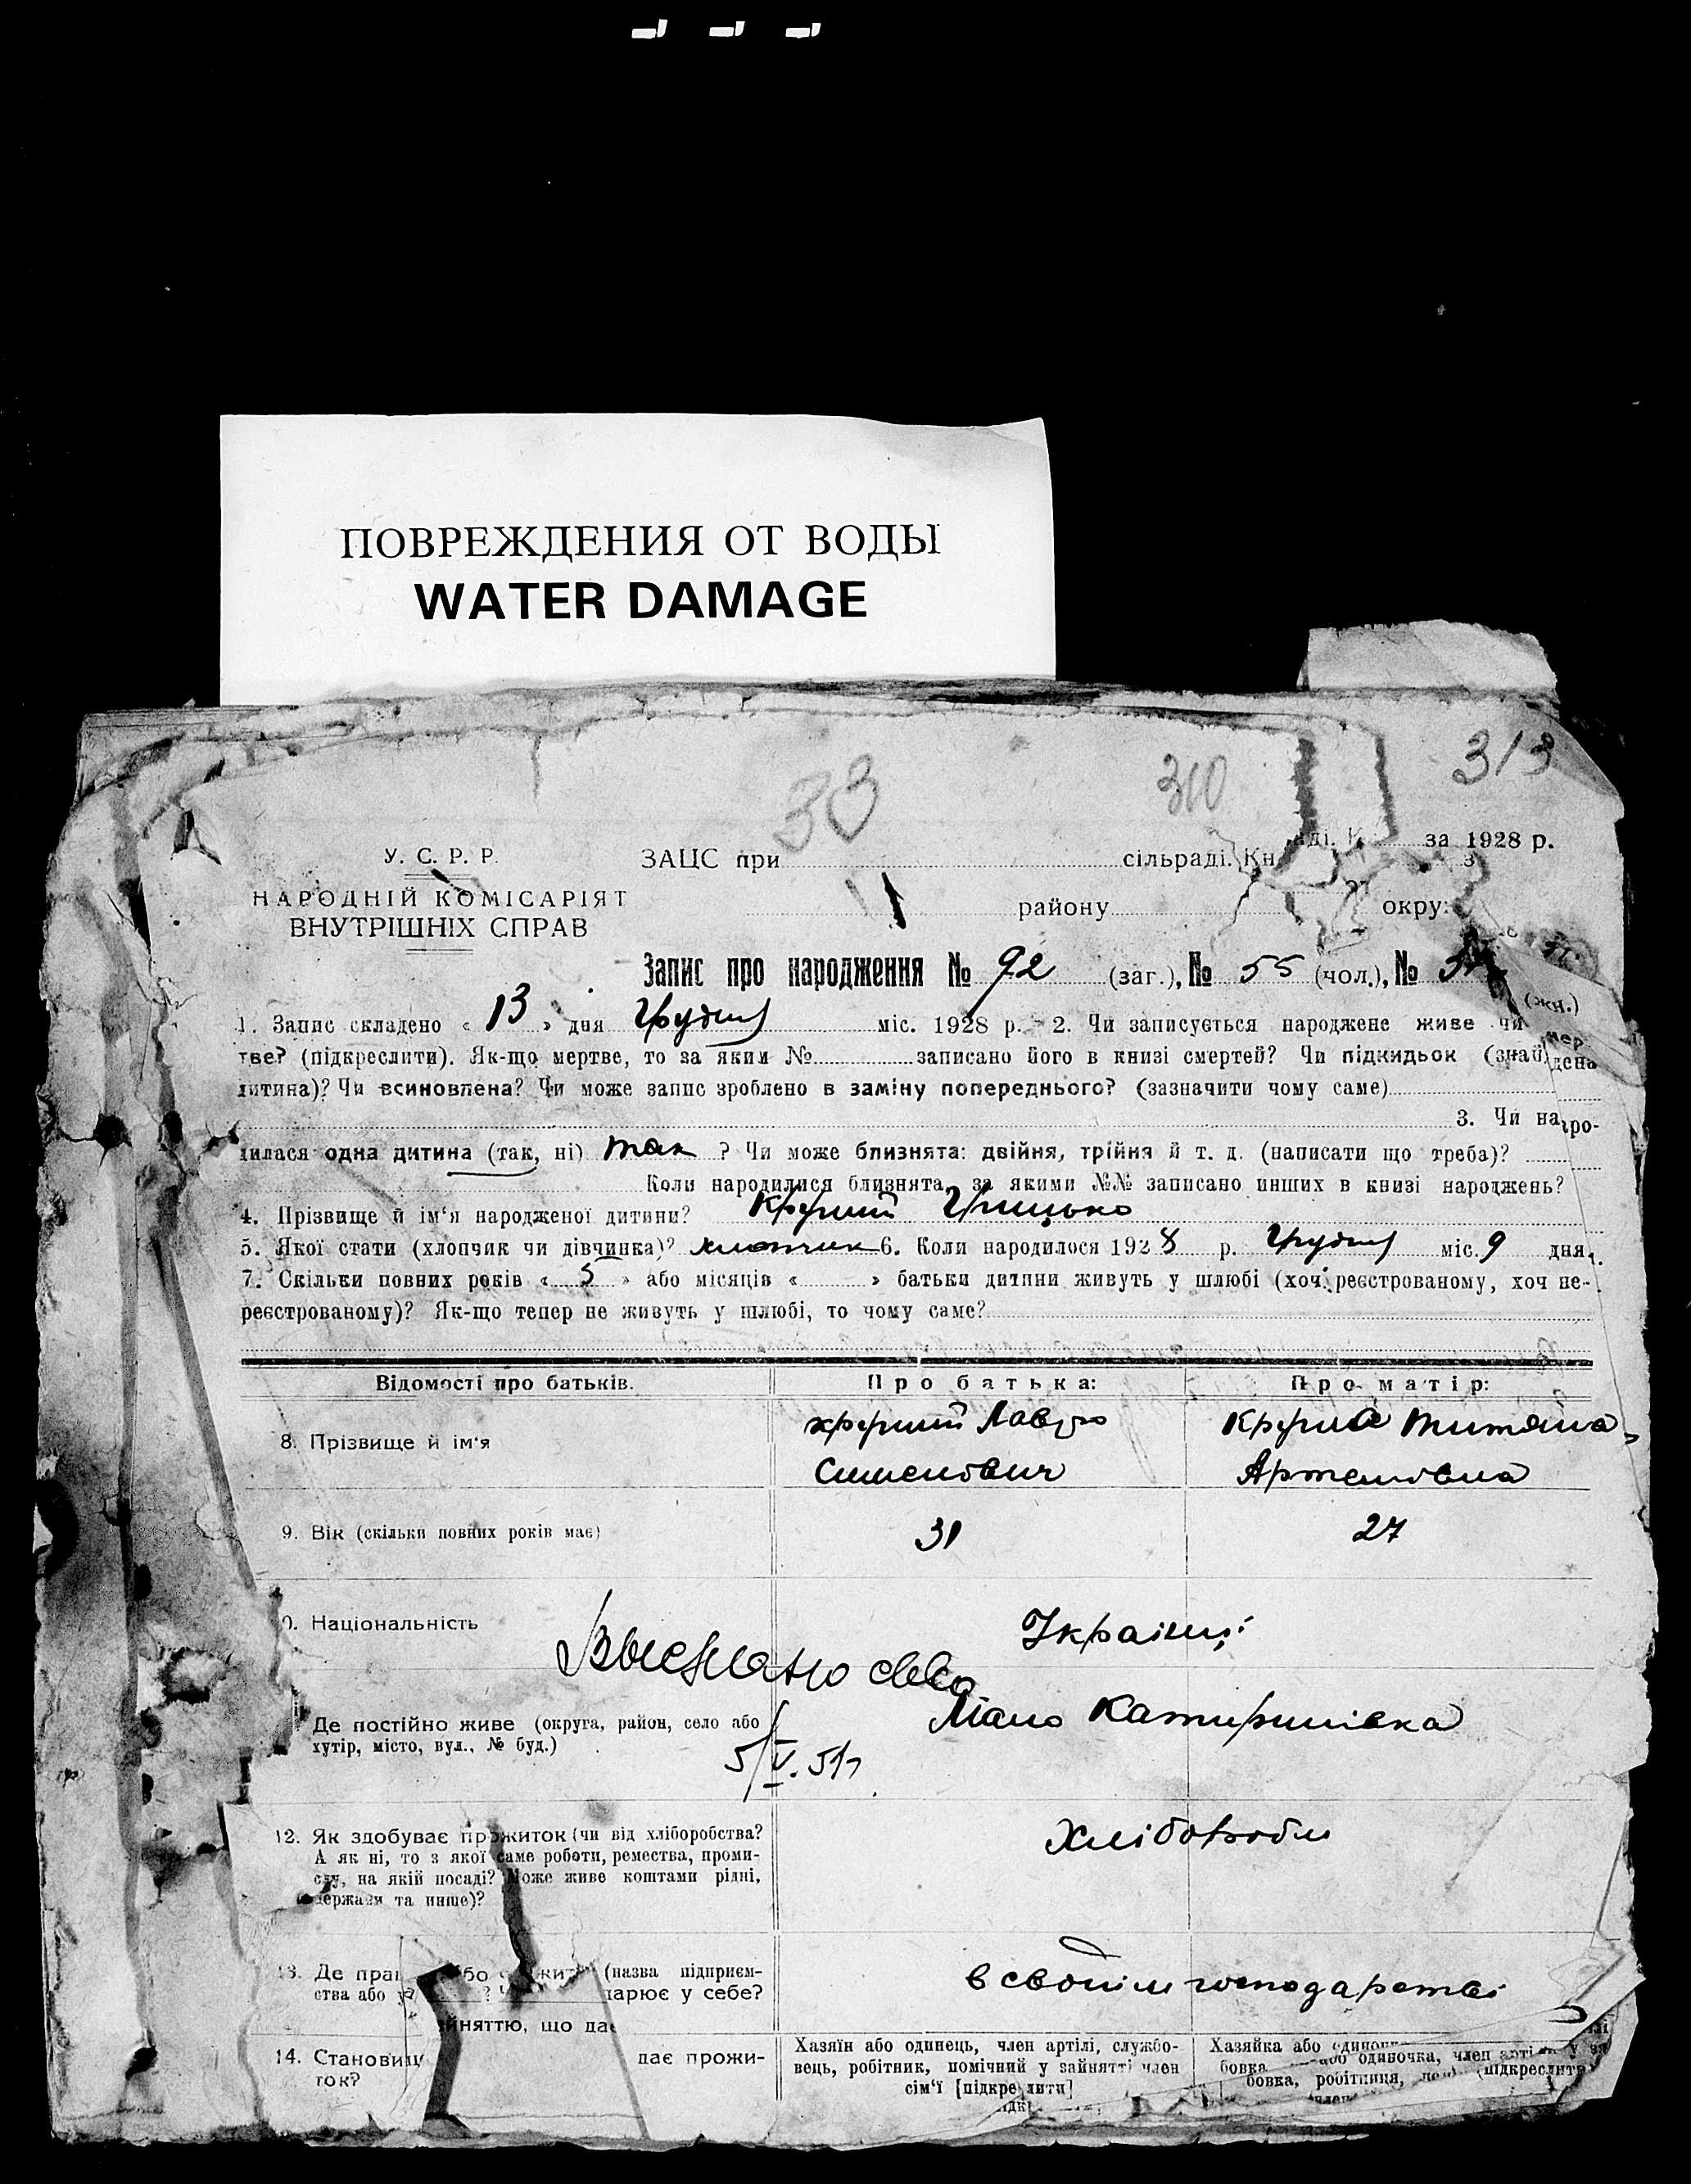 ПОВРЕЖДЕНИЯ ОТ ВОДЫ
WATER DAMAGE
313
310
33
за 1928 р.
У. С. Р. Р.
ЗАЦС при сільраді. Кн
НАРОДНІЙ КОМІСАРІЯТ
ВНУТРІШНІХ СПРАВ
району окру
Запис про народження № 92 (заг.), № 55 (чол.), №
(жн.)
1. Запис складено « 13 » дня Грудня міс. 1928 р. - 2. Чи записується народжене живе чи мер-
тве? (підкреслити). Як-що мертве, то за яким № записано його в книзі смертей? Чи підкидьок (знайдена
дитина)? Чи всиновлена? Чи може запис зроблено в заміну попереднього? (зазначити чому саме)
3. Чи наро-
дилася одна дитина (так, ні) так ? Чи може близнята: двійня, трійня й т. д. (написати що треба)?
Коли народилися близнята, за якими №№ записано инших в книзі народжень?
4. Прізвище й ім'я народженої дитини? Грицько
5. Якої стати (хлопчик чи дівчинка)? хлопчик 6. Коли народилося 1928 р. Грудня міс. 9 дня.
7. Скільки повних років « 5 » або місяців « » батьки дитини живуть у шлюбі (хоч реєстрованому, хоч не-
реєстрованому)? Як-що тепер не живуть у шлюбі, то чому саме?
Відомості про батьків. Про батька: Про матір:
8. Прізвище й ім'я
Семенович Артемовна
9. Вік (скільки повних років має) 31 27
Національність Українці
Де постійно живе (округа, район, село або
хутір, місто, вул., № буд.)
Мало Катеринівка
5/V.51г
12. Як здобуває прожиток (чи від хліборобства?
А як ні, то з якої саме роботи, ремества, проми-
слу, на якій посаді? Може живе коштами рідні,
держави та инше)?
Хлібороби
13. Де (назва підприєм-
ства або у себе?
в своїм господарстві
йняттю, що дає
14. Становищ дає прожи-
ток?
Хазяїн або одинець, член артілі, службо-
вець, робітник, помічний у зайнятті член
сім'ї [підкреслити]
Хазяйка або одиночка, член артілі
бовка, робітниця, (підкреслити)